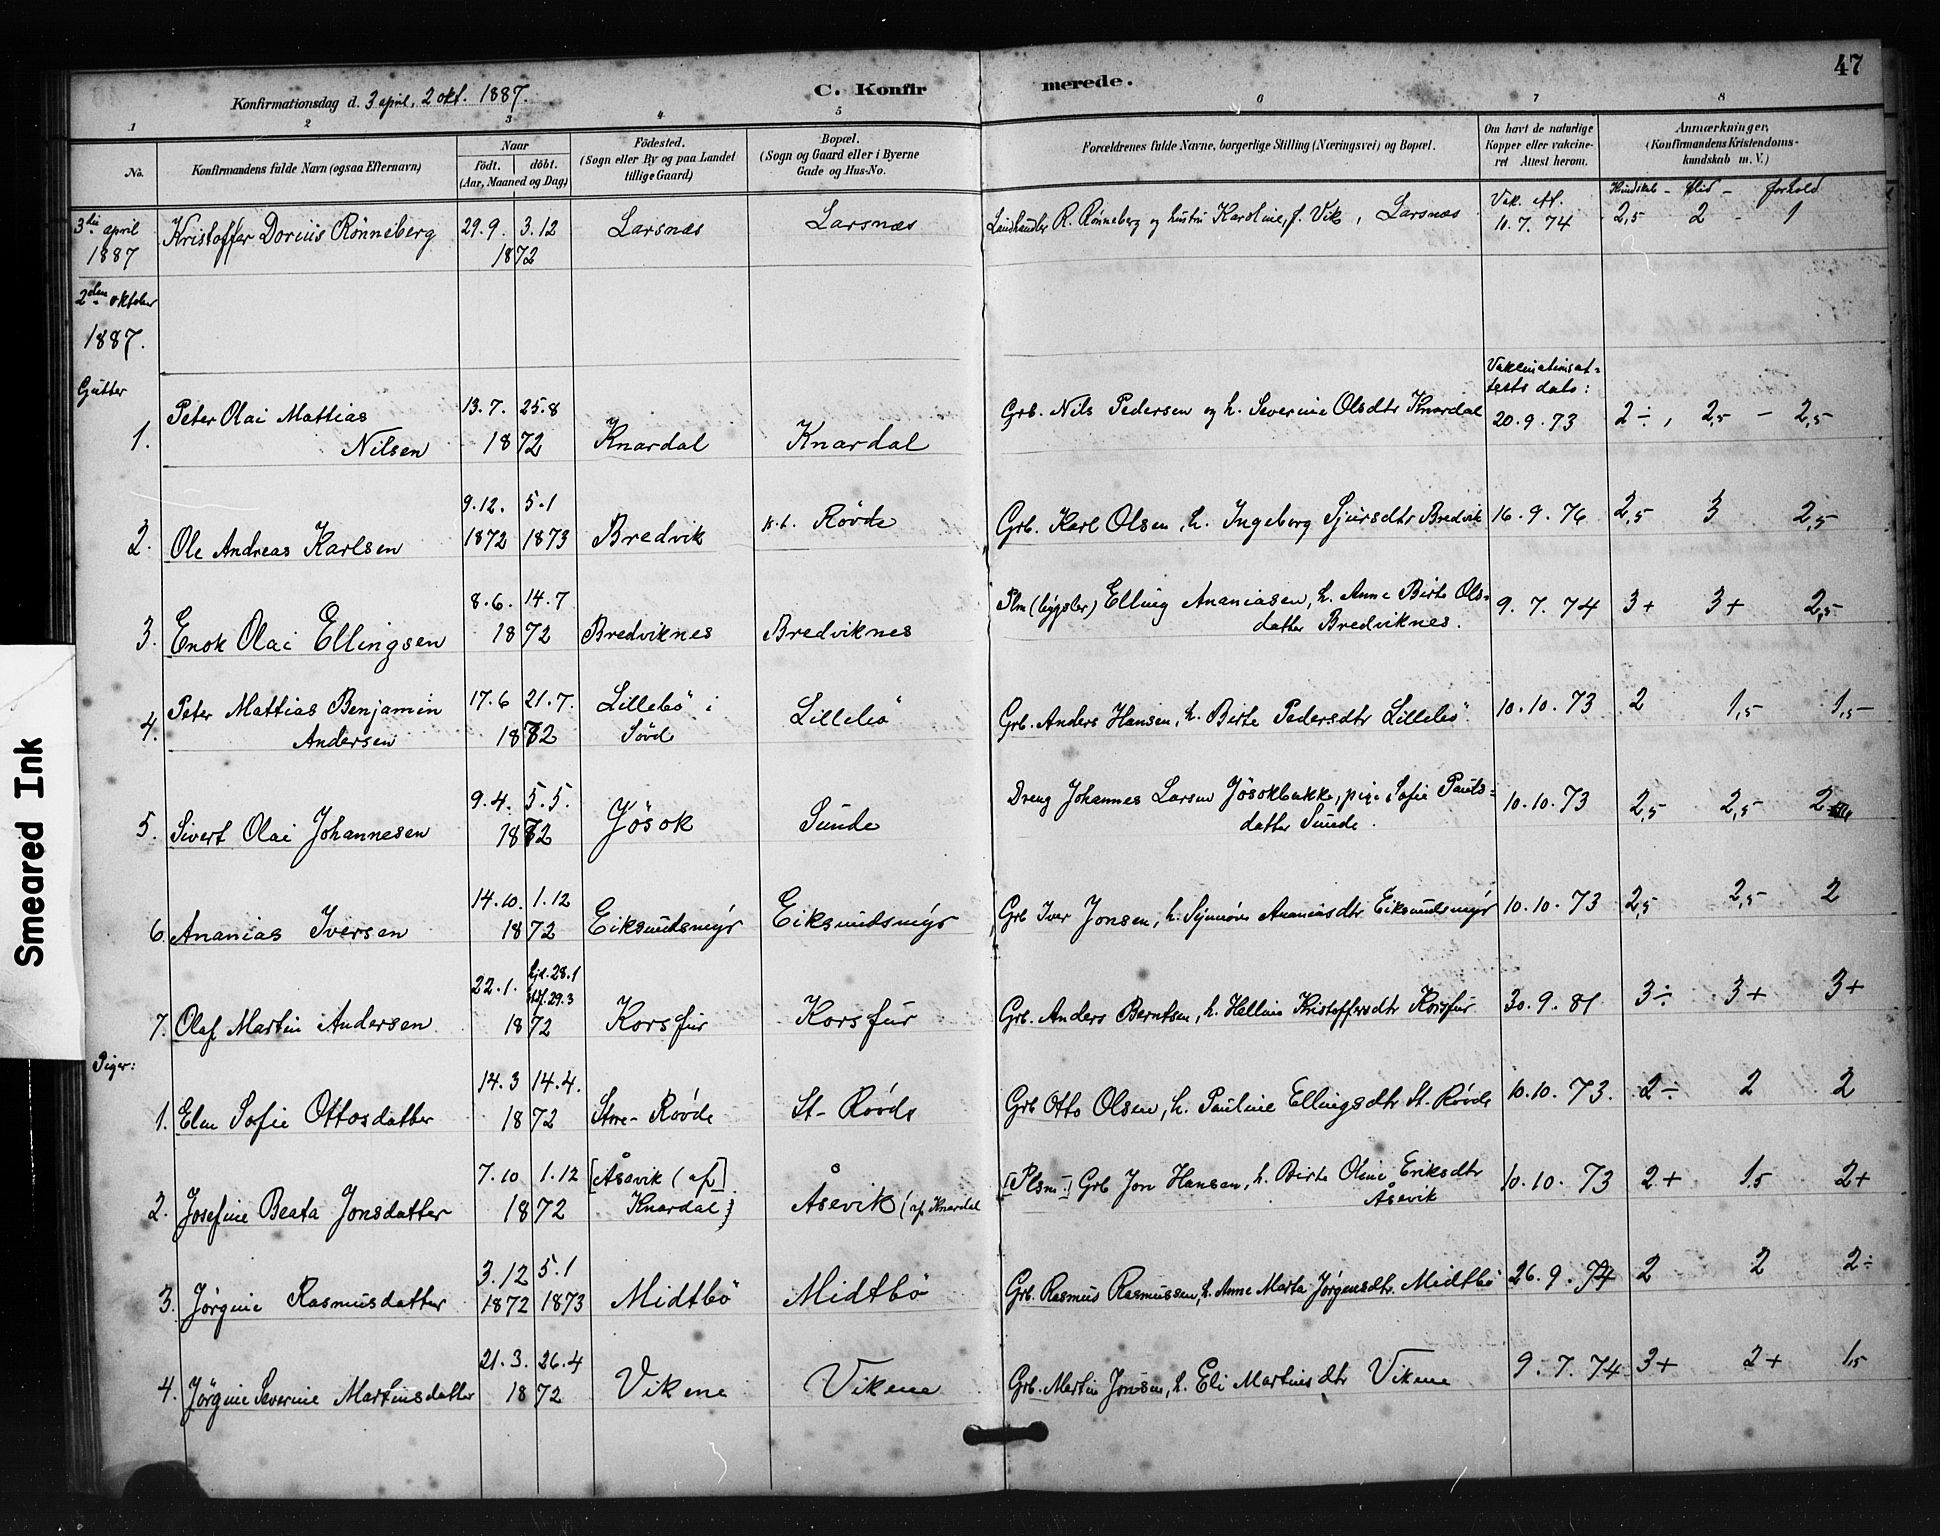 47
Konfirmationsdag d. 3 april, 2 okt. 1887.
C. Konfirmerede.
1 2 3 4 5 6 7 8
No. Konfirmandens fulde Navn (ogsaa Efternavn)
Naar
födt. döbt.
(Aar, Maaned og Dag)
Födested.
(Sogn eller By og paa Landet
tillige Gaard)
Bopæl.
(Sogn og Gaard eller i Byerne
Gade og Hus-No.
Forældrenes fulde Navne, borgerlige Stilling (Næringsvei) og Bopæl.
Om havt de naturlige
Kopper eller vakcine-
ret Attest herom.
Anmærkninger,
(Konfirmandens Kristendoms-
kundskab m. V.)
Kundskab - flid - forhold
3die april Kristoffer Dorius Rønneberg 29.9. 3.12 Larsnæs Larsnæs Landhandler R. Rønneberg og hustru Karoline, f. Vik, Larsnæs Vak. At. 10.7.74 2,5 2 - 1
1887 1872
2den oktober
1887.
Gutter
Vakcinationsat-
tests dato:
1. Peter Olai Mattias 13.7. 25.8 Grb. Nils Pedersen og h. Severine Olsdtr Knardal 20.9.73 2÷, 2,5 - 2,5
Nilsen 1872 Knardal Knardal
2. Ole Andreas Karlsen 9.12. 5.1 Bredvik Røvde Grb. Karl Olsen, h. Ingeborg Sjursdtr Bredvik 16.9.76 2,5 3 2,5
1872 1873
3. Enok Olai Ellingsen 8.6. 14.7 Bredviknes Bredviknes Plm Elling Ananiasen, h. Anne Birte Ols- 9.7.74 3+ 3+ 2,5
1872 datter Bredviknes.
4. Peter Mattias Benjamin 17.6 21.7. Lillebö i Lillebö Grb. Anders Hansen, h. Birte Pedersdtr Lillebö 10.10.73 2 1,5 1,5-
Andersen 1872 Søvd
5. Sivert Olai Johannesen 9.4. 5.5. Jösok Sunde Dreng Johannes Larsen Jösokbakke, pige Sofie Pauls- 10.10.73 2,5 2,5 2
1872 datter Sunde.
6. Ananias Iversen 14.10. 1.12 Eiksundsmyr Eiksundsmyr Grb Iver Jonsen, h. Synnøve Ananiasdtr Eiksundsmyr 10.10.73 2,5 2,5 2
1872
7. Olaf Martin Andersen 22.1. hjd. 28.1 Korsfur Korsfur Grb. Anders Berntsen, h. Helline Kristoffersdtr Korsfur 30.9.81 3÷ 3+ 3+
stdf. 29.3
1872
Piger:
1. Elen Sofie Ottosdatter 14.3 14.4. Store-Røvde St-Røvde Grb Otto Olsen, h. Pauline Ellingsdtr St. Røvde 10.10.73. 2÷ 2 2
1872
2. Josefine Beata Jonsdatter 7.10 1.12 [Åsevik (af] Åsevik (af Knardal [Plsm-] Grb Jon Hansen, h. Birte Oline Eriksdtr 10.10.73 2+ 1,5 2+
1872 Knardal) Åsevik
3. Jørgine Rasmusdatter 3.12 5.1 Midtbö Midtbö Grb. Rasmus Rasmussen, h. Anne Marta Jørgensdtr. Midtbö 26.9.74 2 2 2÷
1872 1873
4. Jørgine Severine Martinsdatter 21.3. 26.4 Vikene Vikene Grb. Martin Jonsen, h. Eli Martinsdtr Vikene 9.7.74 3+ 2+ 1,5
1872
Smeared Ink